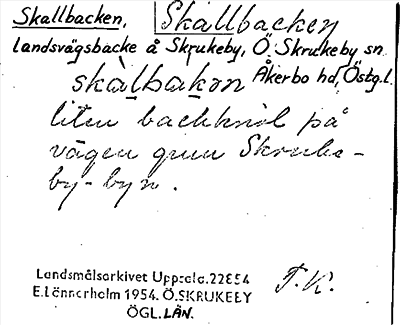 Skallbacken, Skallbacken
landsvägsbacke å Skrukeby, Ö. Skrukeby sn
Åkerbo hd, Östg.l.
skàlbakαn
liten backknöl på
vägen genom Skruke-
by-byn.
Landsmålsarkivet Uppsala.22654
E.Lönnerholm 1954. Ö.SKRUKEBY
ÖGL. LÄN.
F.K.